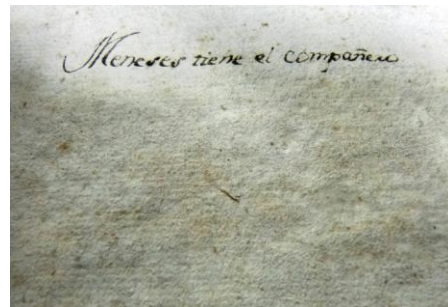 Meneses tiene el compañero